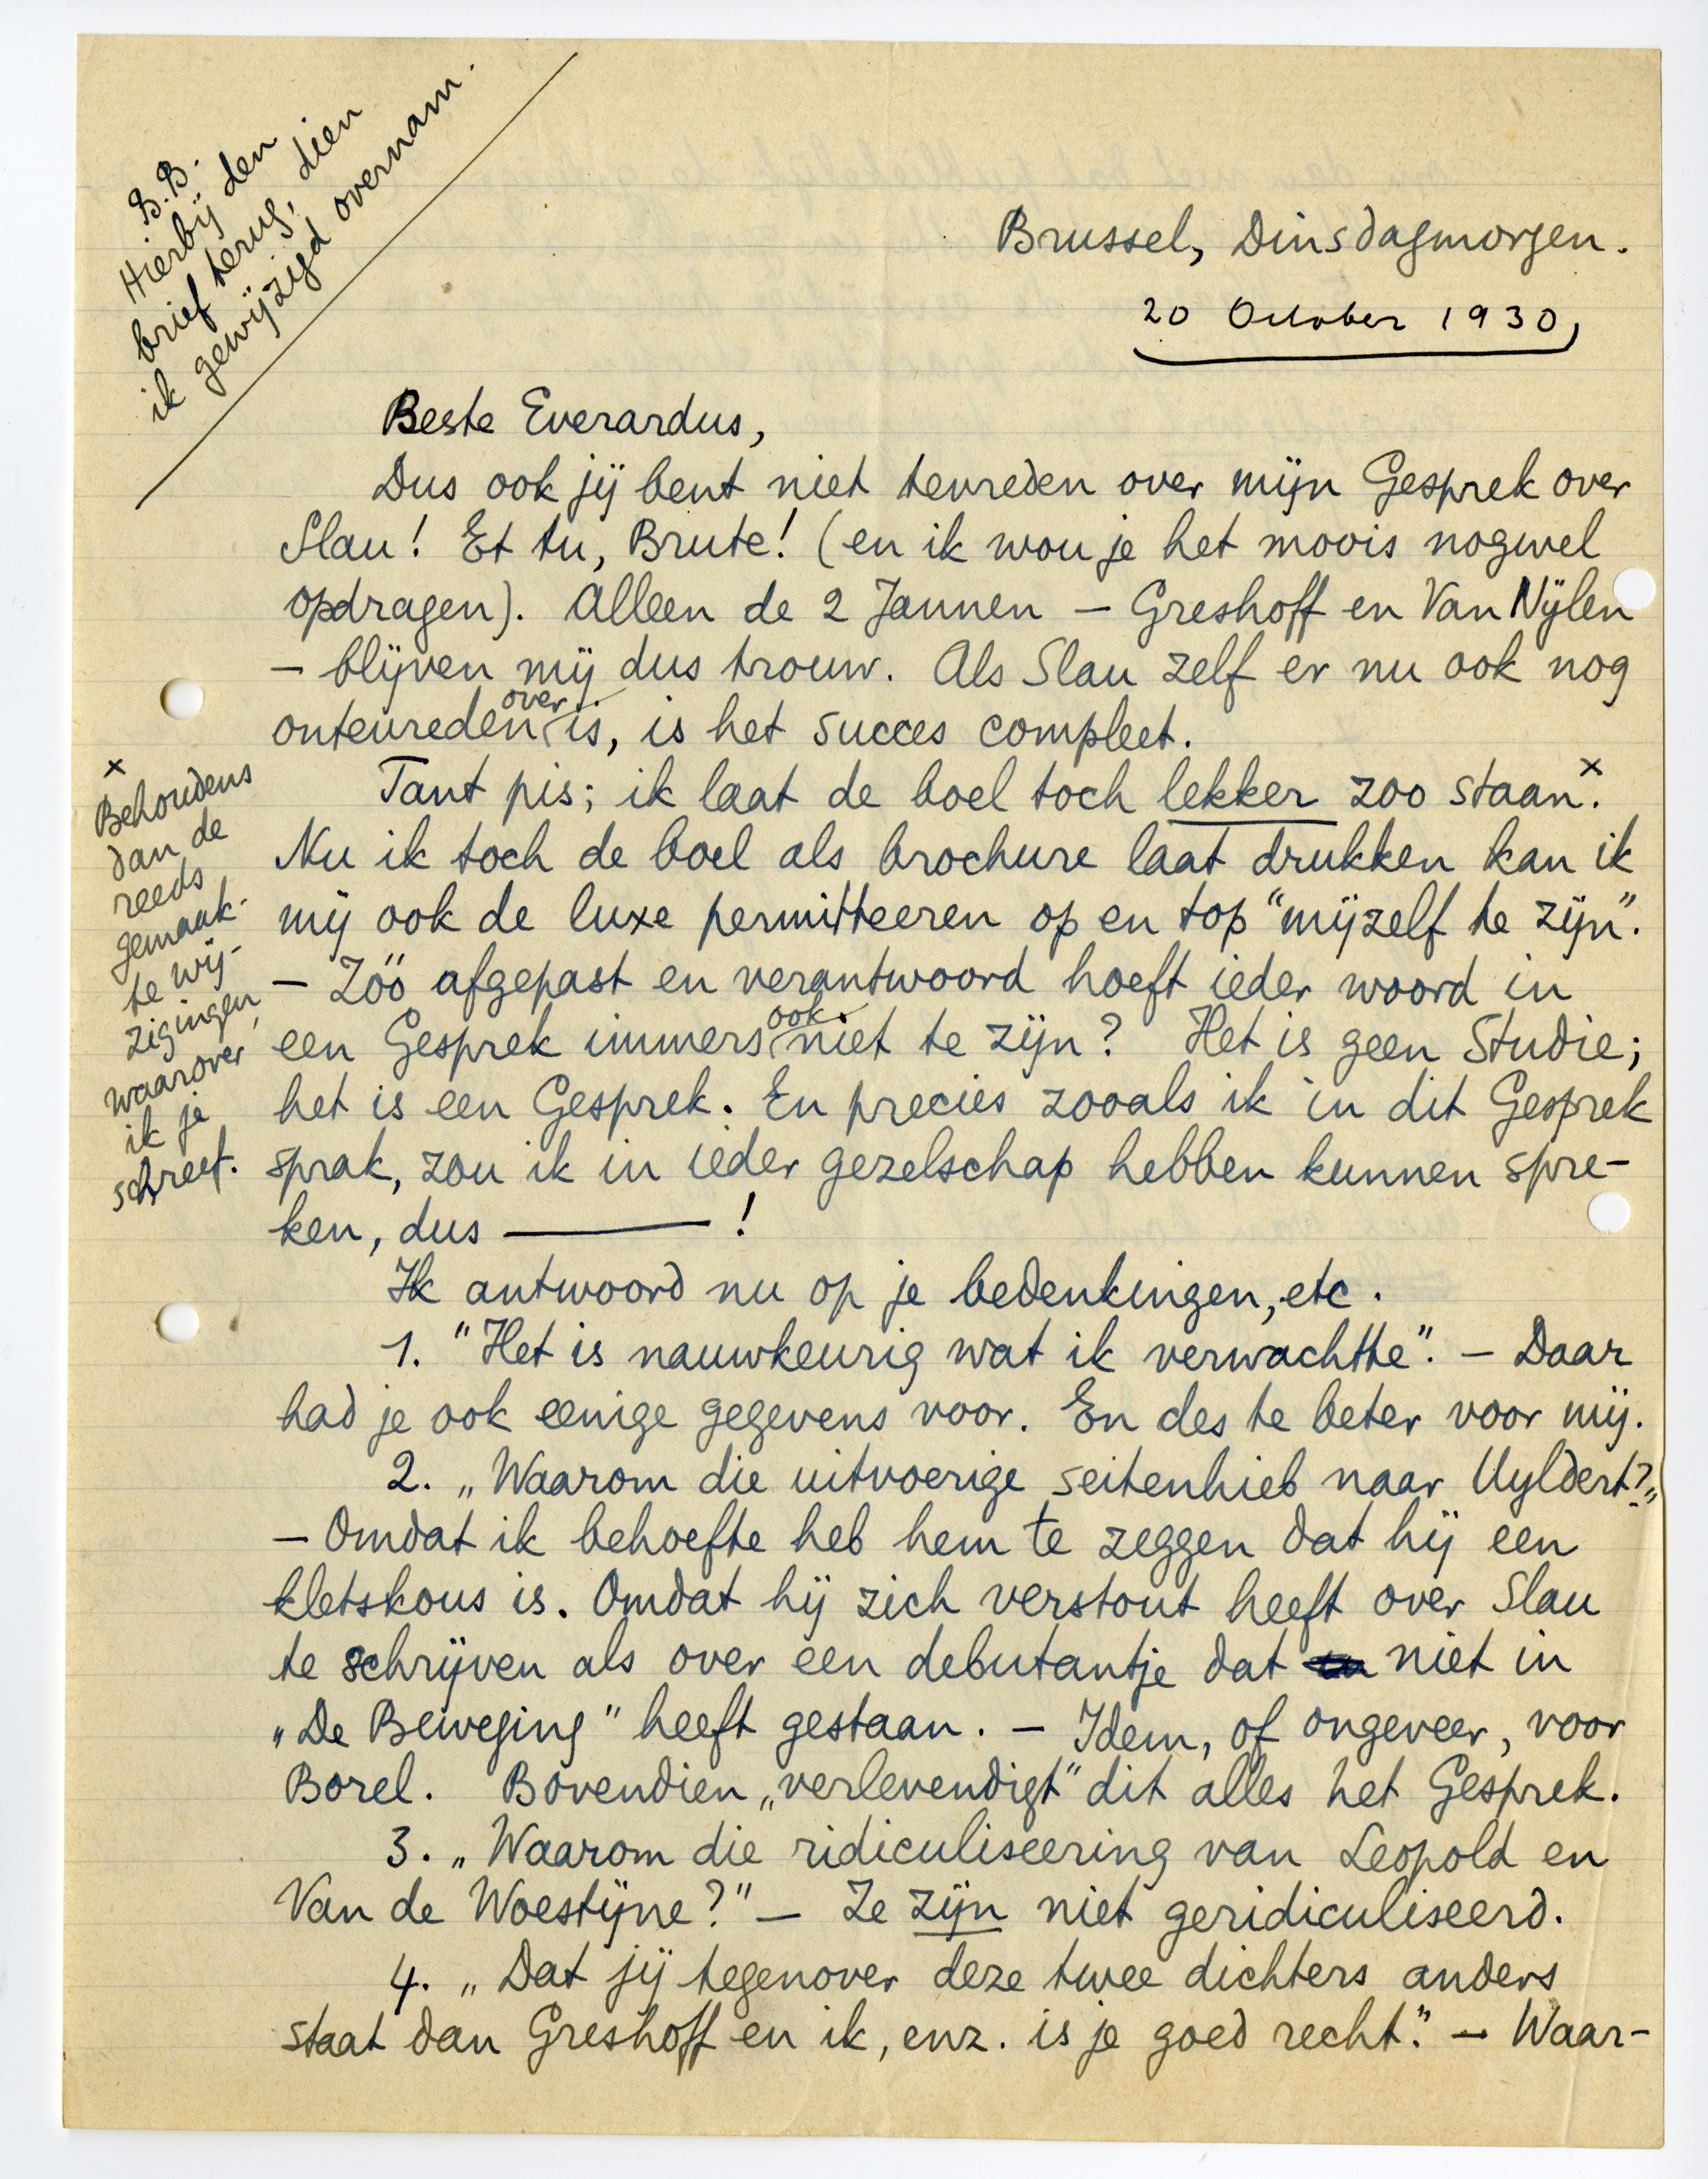 B.B.
Hierbij den
brief terug, dien
ik gewijzigd overnam.
Brussel, Dinsdagmorgen.
20 October 1930,
Beste Everardus,
Dus ook jij bent niet tevreden over mijn Gesprek over
Slau! Et tu, Brute! (en ik wou je het moois nogwel
opdragen). Alleen de 2 Jannen – Greshoff en Van Nijlen
– blijven mij dus trouw. Als Slau zelf er nu ook nog
ontevreden over is, is het succes compleet.
Tant pis; ik laat de boel toch lekker zoo staan.x
Nu ik toch de boel als brochure laat drukken kan ik
mij ook de luxe permitteeren op en top “mijzelf te zijn”.
– Zóó afgepast en verantwoord hoeft ieder woord in
een Gesprek immers ook niet te zijn? Het is geen Studie;
het is een Gesprek. En precies zooals ik in dit Gesprek
sprak, zou ik in ieder gezelschap hebben kunnen spre-
ken, dus ——— !
Ik antwoord nu op je bedenkingen, etc.
1. “Het is nauwkeurig wat ik verwachtte”. – Daar
had je ook eenige gegevens voor. En des te beter voor mij.
2. „Waarom die uitvoerige seitenhieb naar Uyldert?„
– Omdat ik behoefte heb hem te zeggen dat hij een
kletskous is. Omdat hij zich verstout heeft over Slau
te schrijven als over een debutantje dat niet in
„De Beweging” heeft gestaan. – Idem, of ongeveer, voor
Borel. Bovendien „verlevendigt” dit alles het Gesprek.
3. „Waarom die ridiculiseering van Leopold en
Van de Woestijne?” – Ze zijn niet geridiculiseerd.
4. „Dat jij tegenover deze twee dichters anders
staat dan Greshoff en ik, enz. is je goed recht.” – Waar-
x
Behoudens
dan de
reeds
gemaak-
te wij-
zigingen,
waarover
ik je
schreef.